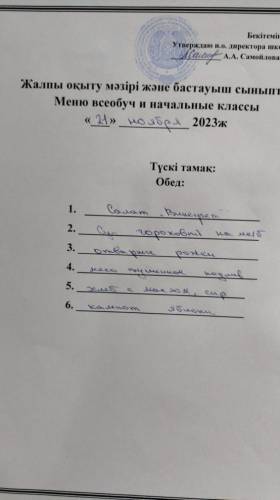 Бекітемін
Утверждаю и.о. директора шко
А.А. Самойлова
Жалпы оқыту мәзірі және бастауыш сыныпт
Меню всеобуч и начальные классы
« 21 » ноября 2023ж
Түскі тамақ:
Обед:
1. Салат "Винегрет"
2. Суп гороховый на
3. отварные рожки
4. мясо тушенное
5. хлеб с маслом, сыр
6. компот яблоки